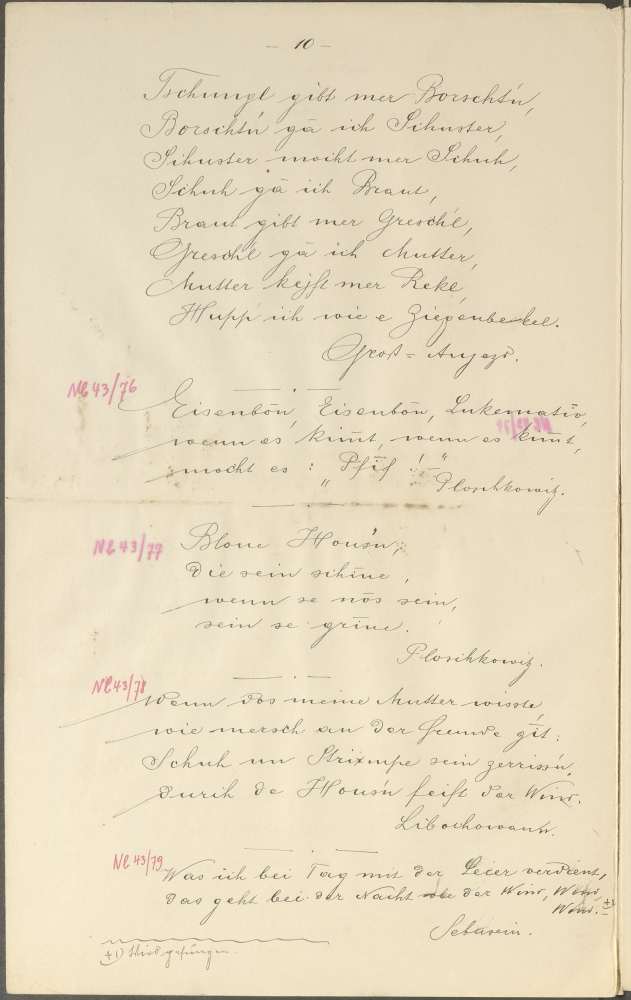 - 10 -
Tschungl gibt mer Borscht'n,
Borscht'n gā ich Schuster,
Schuster mocht mer Schuh,
Schuh gā ich Braut,
Braut gibt mer Gresch'l,
Gresch'l gā ich Mutter,
Mutter kejft mer Reke,
Hupp ich wie e Ziegenbekel.
Groß=Aujezd.
Nl 43/76
Eisenbōn, Eisenbōn, Lukematīv,
wenn es kimt, wenn es kimt,
mocht es: " Pfīf ! "
Ploschkowitz.
Nl 43/77
Bloue Hous'n,
die sein schīne,
wenn se nōs sein,
sein se grīne.
Ploschkowitz.
Nl 43/78
Wenn dos meine Mutter wisste,
wie mersch an der Fremde gīt:
Schuh un Strixmpe sein zerriss'n,
durich de Hous'n feift der Wind.
Libochowan.
Nl 43/79
Was ich bei Tag mit der Leier verdient,
das geht bei der Nacht der Wind, Wind,
Wind. +1)
Sebusein.
+1) Wird gesungen.